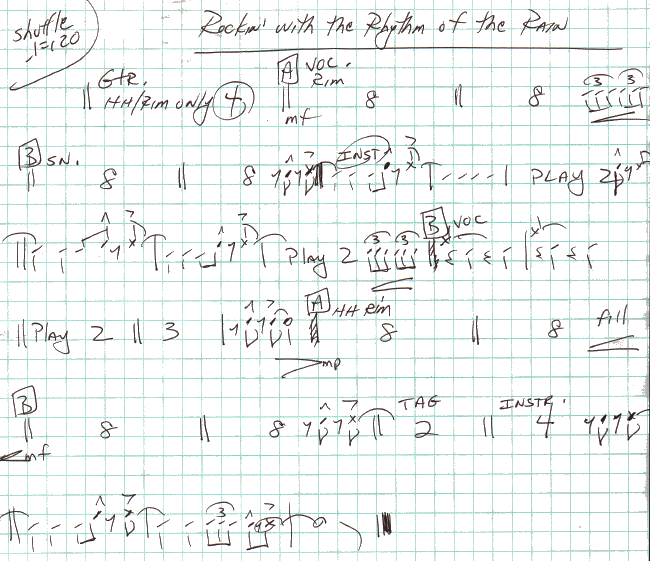 Rockin' with the Rhythm of the RAIN
shuffle
♩=120
GTR. A VOC.
HH/Rim only 4 Rim 8 8 3 3
mf
B SN. 8 8 INST. PLAY 2
Play 2 3 3 B VOC
Play 2 3 A HH Rim 8 8 fill
mp
B 8 8 TAG 2 INSTR. 4
mf
3